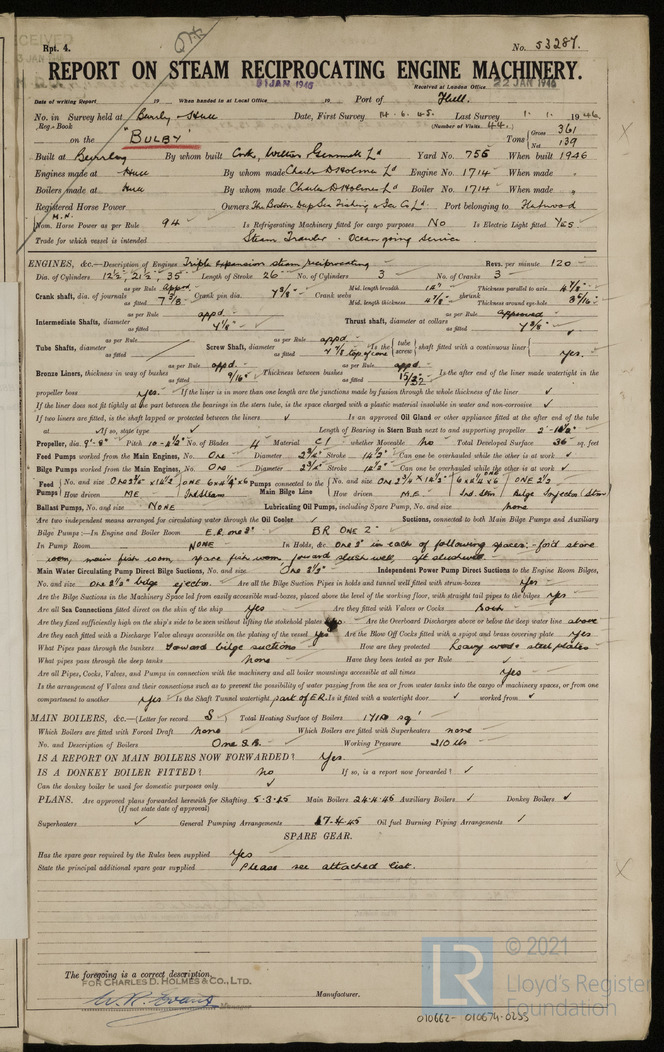 Rpt. 4.
No. 53287.
REPORT ON STEAM RECIPROCATING ENGINE MACHINERY.
Received at London Office 22 JAN 1946
Date of writing Report 19 When handed in at Local Office 19 Port of Hull.
No. in Survey held at Date, First Survey 14.6.45. Last Survey 1.1.1946
Reg. Book (Number of Visits 44)
on the "BULBY" Tons Gross 361 Net 139
Built at Beverley By whom built Cook, Welton & Gemmell Ld Yard No. 755 When built 1946
Engines made at Hull By whom made Charles D Holmes Ld Engine No. 1714 When made
Boilers made at Hull By whom made Charles D Holmes Ld Boiler No. 1714 When made
Registered Horse Power Owners The Boston Deep Sea Fishing & Ice Co Ld Port belonging to Fleetwood
Nom. Horse Power as per Rule 94 Is Refrigerating Machinery fitted for cargo purposes No Is Electric Light fitted Yes.
Trade for which vessel is intended Steam Trawler - Ocean going service
ENGINES, &c.—Description of Engines Triple expansion steam reciprocating Revs. per minute 120
Dia. of Cylinders 12½, 21½, 35 Length of Stroke 26 No. of Cylinders 3 No. of Cranks 3
Crank shaft, dia. of journals as per Rule appd. as fitted 7 3/8" Crank pin dia. 7 3/8" Crank webs Mid. length breadth 14" Mid. length thickness 4 7/8" shrunk Thickness parallel to axis 4 7/8" Thickness around eye-hole
Intermediate Shafts, diameter as per Rule appd as fitted Thrust shaft, diameter at collars as per Rule approved as fitted 7 3/8"
Tube Shafts, diameter as per Rule as fitted Screw Shaft, diameter as per Rule appd as fitted top of cone Is the tube screw shaft fitted with a continuous liner yes.
Bronze Liners, thickness in way of bushes as per Rule appd. as fitted 9/16" Thickness between bushes as per Rule appd as fitted 15/32" Is the after end of the liner made watertight in the
propeller boss yes. If the liner is in more than one length are the junctions made by fusion through the whole thickness of the liner
If the liner does not fit tightly at the part between the bearings in the stern tube, is the space charged with a plastic material insoluble in water and non-corrosive
If two liners are fitted, is the shaft lapped or protected between the liners Is an approved Oil Gland or other appliance fitted at the after end of the tube
If so, state type Length of Bearing in Stern Bush next to and supporting propeller
Propeller, dia. 9'-8" Pitch 10-1½" No. of Blades 4 Material C.I whether Moveable No Total Developed Surface 36 sq. feet
Feed Pumps worked from the Main Engines, No. One Diameter 2¾" Stroke 14½" Can one be overhauled while the other is at work
Bilge Pumps worked from the Main Engines, No. One Diameter 2¾" Stroke 14½" Can one be overhauled while the other is at work
Feed Pumps No. and size One 2¾" x 14½" one 6x4¼x6 How driven M.E. Ind. Steam Pumps connected to the Main Bilge Line No. and size One 2¾ x 14½" How driven M.E. Ind. Stm Bilge Injector (Stm)
Ballast Pumps, No. and size None Lubricating Oil Pumps, including Spare Pump, No. and size none
Are two independent means arranged for circulating water through the Oil Cooler Suctions, connected to both Main Bilge Pumps and Auxiliary
Bilge Pumps:—In Engine and Boiler Room E.R. one 2" B.R. ONE 2"
In Pump Room NONE In Holds, &c. One 2" in each of following spaces:- for'd store
room, main fish room, spare fish room, forward slush well, aft slushwell.
Main Water Circulating Pump Direct Bilge Suctions, No. and size One 2½" Independent Power Pump Direct Suctions to the Engine Room Bilges,
No. and size One 2½" bilge ejector. Are all the Bilge Suction Pipes in holds and tunnel well fitted with strum-boxes Yes
Are the Bilge Suctions in the Machinery Space led from easily accessible mud-boxes, placed above the level of the working floor, with straight tail pipes to the bilges yes
Are all Sea Connections fitted direct on the skin of the ship Yes Are they fitted with Valves or Cocks Both
Are they fixed sufficiently high on the ship's side to be seen without lifting the stokehold plates Are the Overboard Discharges above or below the deep water line above
Are they each fitted with a Discharge Valve always accessible on the plating of the vessel yes Are the Blow Off Cocks fitted with a spigot and brass covering plate yes
What Pipes pass through the bunkers Forward bilge suctions How are they protected Heavy wood & steel plates
What pipes pass through the deep tanks None Have they been tested as per Rule
Are all Pipes, Cocks, Valves, and Pumps in connection with the machinery and all boiler mountings accessible at all times Yes
Is the arrangement of Valves and their connections such as to prevent the possibility of water passing from the sea or from water tanks into the cargo or machinery spaces, or from one
compartment to another yes Is the Shaft Tunnel watertight part of E.R. Is it fitted with a watertight door worked from
MAIN BOILERS, &c.—(Letter for record S) Total Heating Surface of Boilers 1710 sq'
Which Boilers are fitted with Forced Draft None Which Boilers are fitted with Superheaters none
No. and Description of Boilers One S.B. Working Pressure 210 lbs
IS A REPORT ON MAIN BOILERS NOW FORWARDED? Yes.
IS A DONKEY BOILER FITTED? No If so, is a report now forwarded?
Can the donkey boiler be used for domestic purposes only
PLANS. Are approved plans forwarded herewith for Shafting 5.3.45 Main Boilers 24.4.45 Auxiliary Boilers Donkey Boilers
(If not state date of approval)
Superheaters General Pumping Arrangements 17.4.45 Oil fuel Burning Piping Arrangements
SPARE GEAR.
Has the spare gear required by the Rules been supplied Yes
State the principal additional spare gear supplied Please see attached list.
The foregoing is a correct description,
FOR CHARLES D. HOLMES & CO., LTD.
W.R. Evans Manager Manufacturer.
LR
© 2021
Lloyd's Register
Foundation
010662-010674-0255